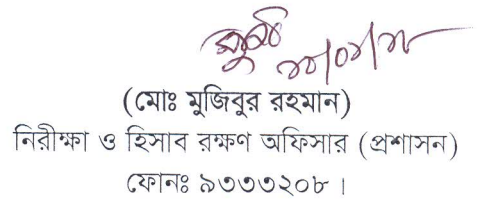 (মোঃ মুজিবুর রহমান)
নিরীক্ষা ও হিসাব রক্ষণ অফিসার (প্রশাসন)
ফোনঃ ৯৩৩৩২০৮।